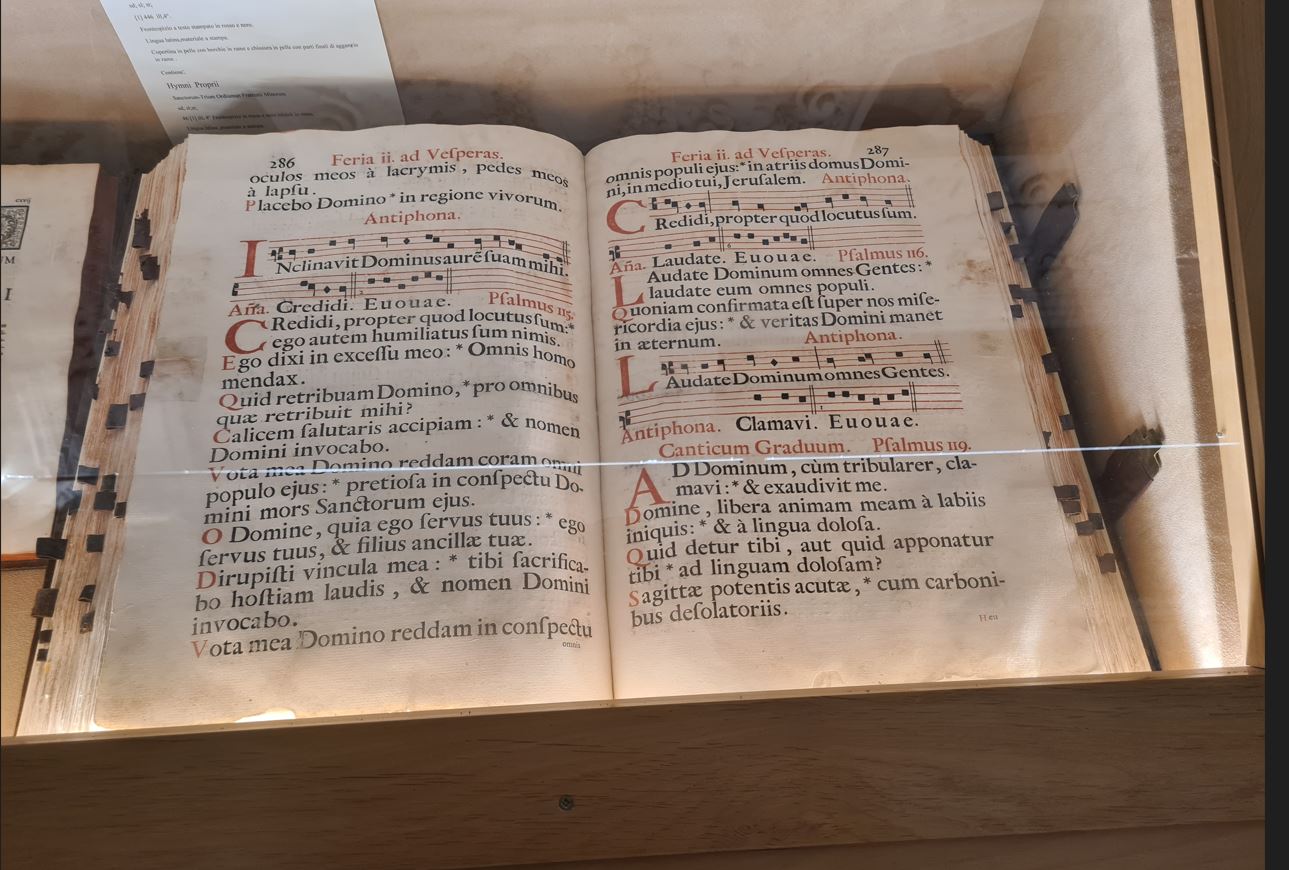 ad; si; st;
[1] 446 III,4°.
Frontespizio a testo stampato in rosso e nero.
Lingua latina,materiale a stampa.
Copertina in pelle con borchie in rame e chiusura in pelle con parti finali di aggancio
in rame .
Contiene;
Hymni Proprii
Sanctorum Trium Ordinum Fratrum Minorum
sd; sl;st;
UM
I
286 Feria ii. ad Veſperas.
oculos meos à lacrymis , pedes meos
à lapſu.
Placebo Domino * in regione vivorum.
Antiphona.
INclinavit Dominus aurẽ ſuam mihi.
Aña. Credidi. Euouae. Pſalmus 115.
CRedidi, propter quod locutus ſum:*
ego autem humiliatus ſum nimis.
Ego dixi in exceſſu meo: * Omnis homo
mendax.
Quid retribuam Domino, * pro omnibus
quæ retribuit mihi?
Calicem ſalutaris accipiam : * & nomen
Domini invocabo.
Vota mea Domino reddam coram omni
populo ejus: * pretioſa in conſpectu Do-
mini mors Sanctorum ejus.
O Domine, quia ego ſervus tuus : * ego
ſervus tuus, & filius ancillæ tuæ.
Dirupiſti vincula mea : * tibi ſacrifica-
bo hoſtiam laudis , & nomen Domini
invocabo.
Vota mea Domino reddam in conſpectu
omnis
Feria ii. ad Veſperas. 287
omnis populi ejus:* in atriis domus Domi-
ni, in medio tui, Jeruſalem. Antiphona.
CRedidi, propter quod locutus ſum.
Aña. Laudate. Euouae. Pſalmus 116.
LAudate Dominum omnes Gentes : *
laudate eum omnes populi.
Quoniam confirmata eſt ſuper nos miſe-
ricordia ejus : * & veritas Domini manet
in æternum. Antiphona.
LAudate Dominum omnes Gentes.
Antiphona. Clamavi. Euouae.
Canticum Graduum. Pſalmus 119.
AD Dominum , cùm tribularer, cla-
mavi : * & exaudivit me.
Domine , libera animam meam à labiis
iniquis: * & à lingua doloſa.
Quid detur tibi , aut quid apponatur
tibi * ad linguam doloſam?
Sagittæ potentis acutæ , * cum carboni-
bus deſolatoriis.
Heu